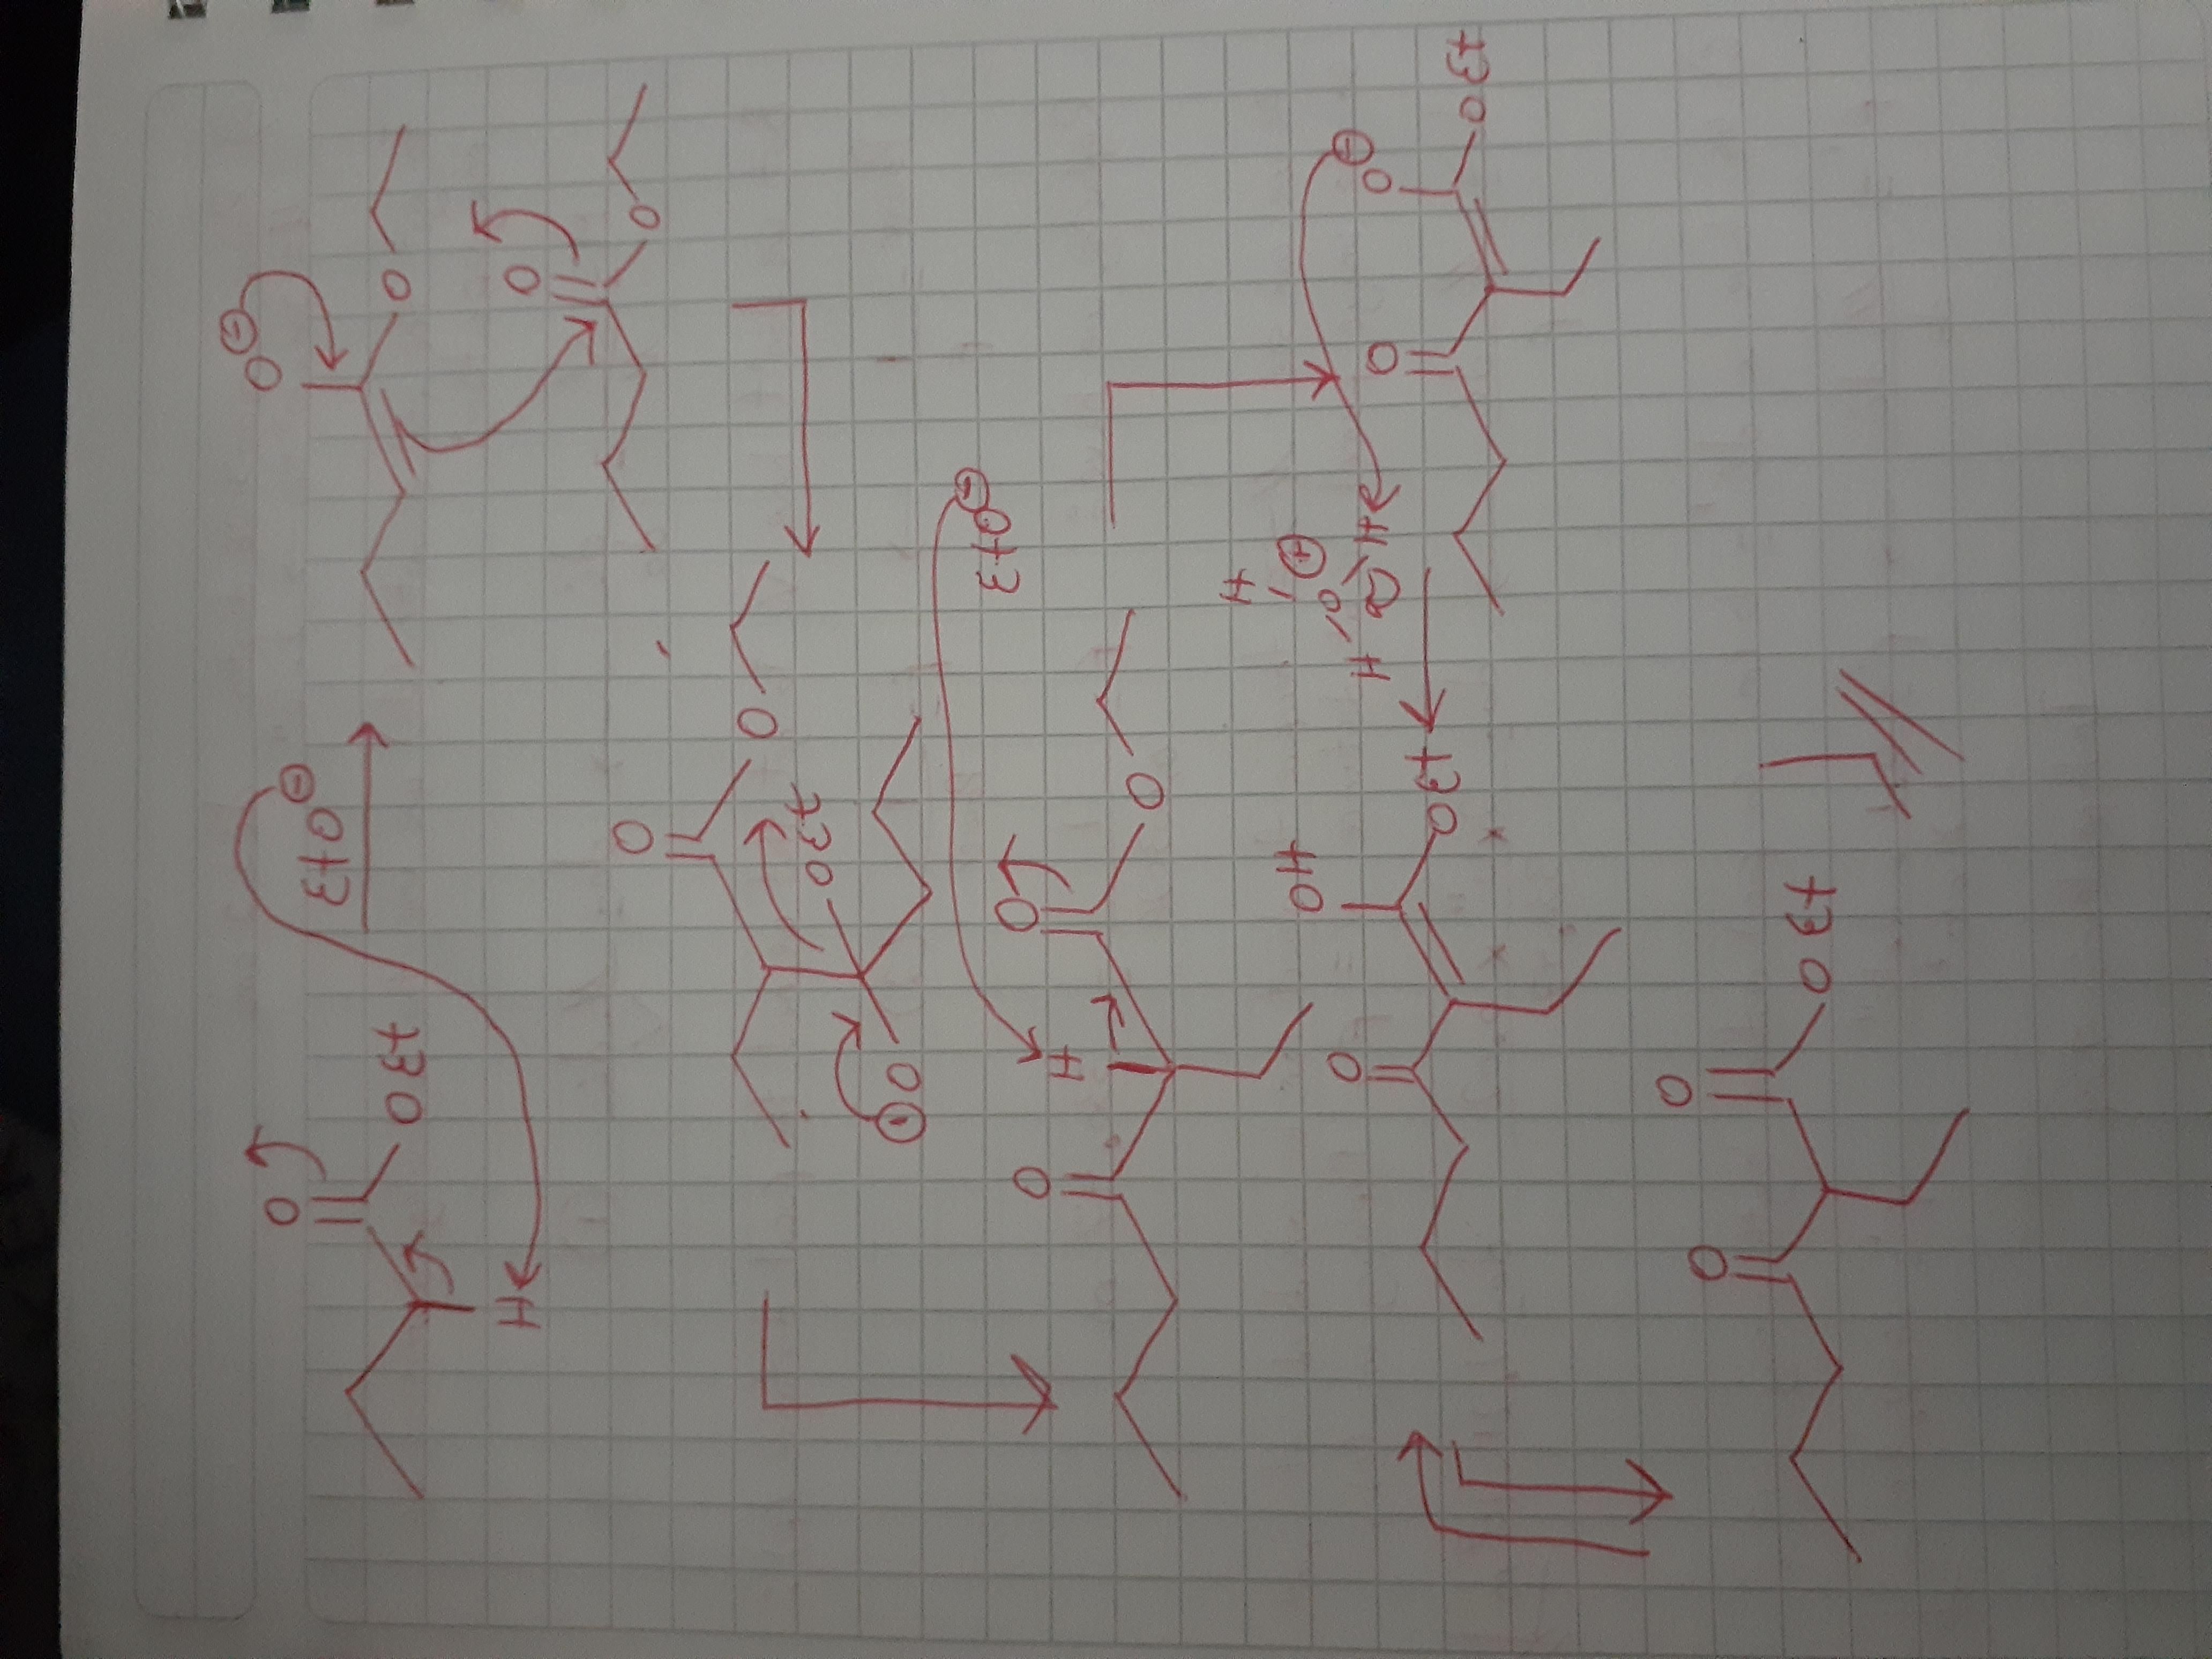 O
OEt
H
EtO⊖
O⊖
O
O
O
O
O
OEt
⊖O
EtO⊖
O
H
O
O
O
OH
OEt
H
H O⊕ H
O
O⊖
OEt
O
O
OEt